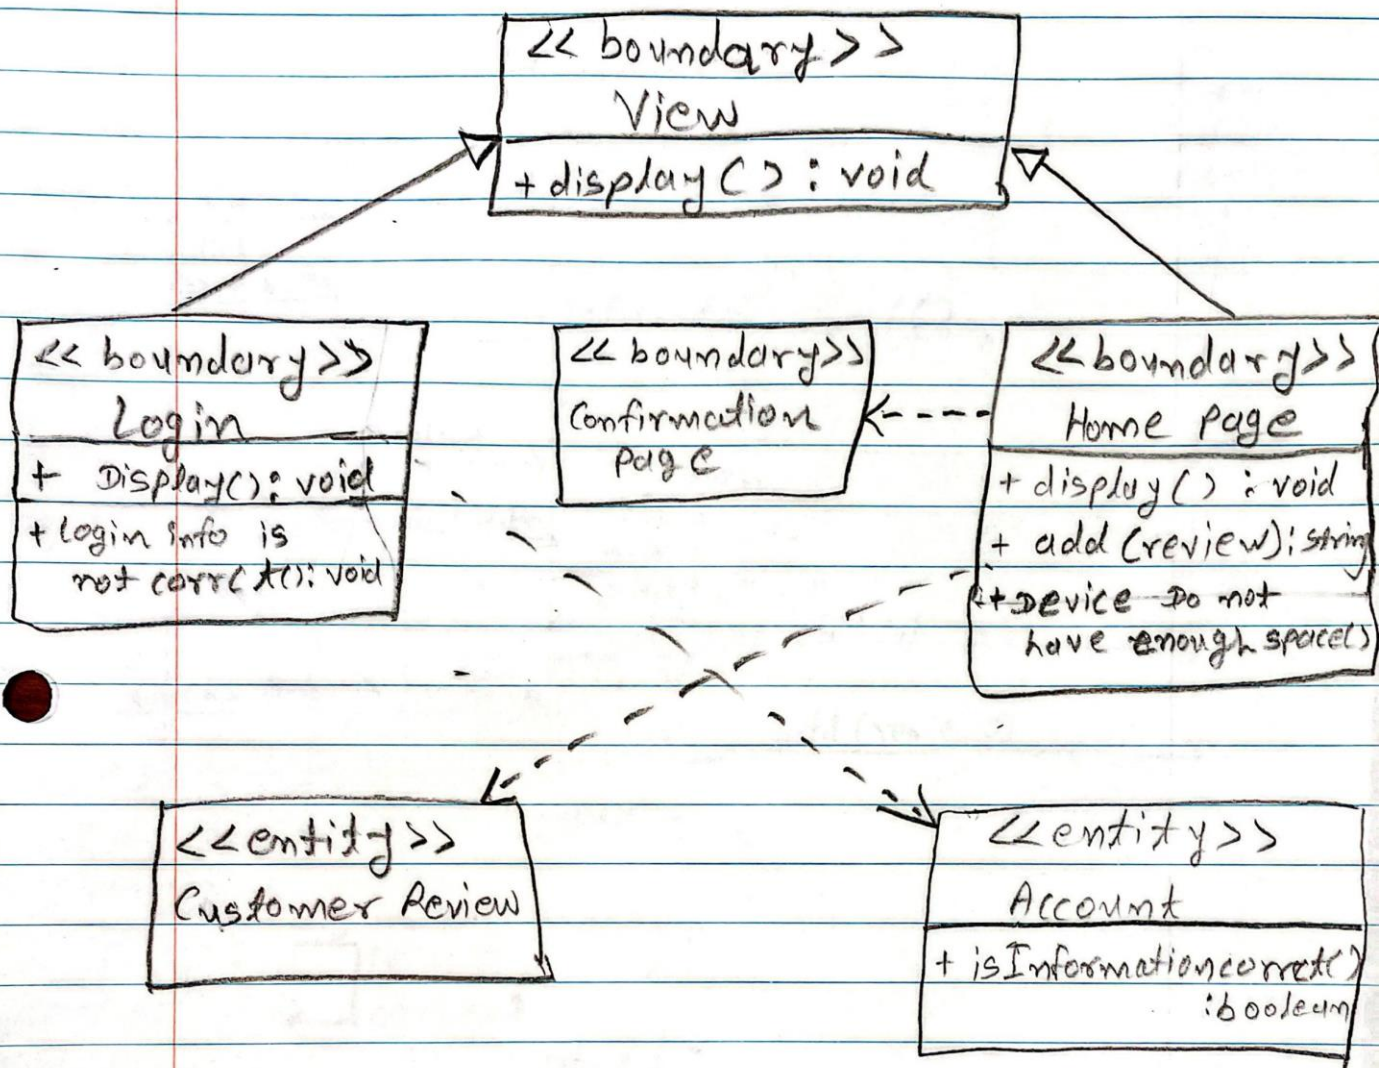 << boundary >>
View
+ display ( ) : void
<< boundary >>
Login
+ Display() : void
+ login info is
not correct() : void
<< boundary >>
Confirmation
page
<< boundary >>
Home Page
+ display ( ) : void
+ add (review) : string
+ Device Do not
have enough space()
<<entity>>
Customer Review
<<entity>>
Account
+ isInformationcorrect()
:boolean